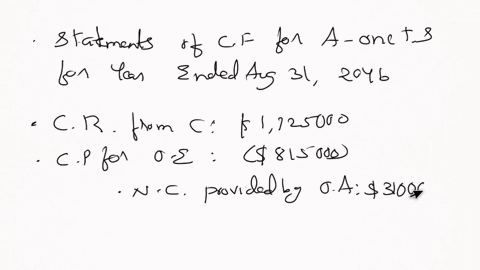 . Statments of C.F for A-one T S
for Year Ended Aug 31, 2046
. C.R. from C: $ 1,125000
. C.P for O.E : ($ 815000)
. N.C. provided by O.A: $ 3100